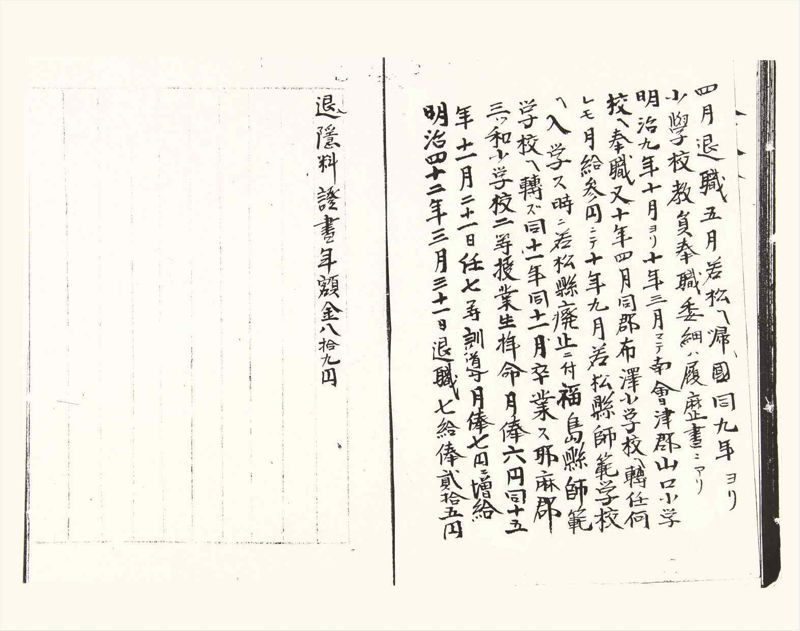 四月退職五月若松ヘ帰國同九年ヨリ
小學校教員奉職委細ハ履歴書ニアリ
明治九年十月ヨリ十年三月マテ南會津郡山口小学
校ヘ奉職又十年四月同郡布澤小学校ヘ轉任何
レモ月給参円ニテ十年九月若松縣師範学校
ヘ入学ス時ニ若松縣廃止ニ付福島縣師範
学校ヘ轉ズ同十一年同十一月卒業ス耶麻郡
三ツ和小学校二等授業生拝命月俸六円同十五
年十一月二十一日任七等訓導月俸七円ニ増給
明治四十二年三月三十一日退職七給俸貮拾五円
退隠料證書年額金八拾九円